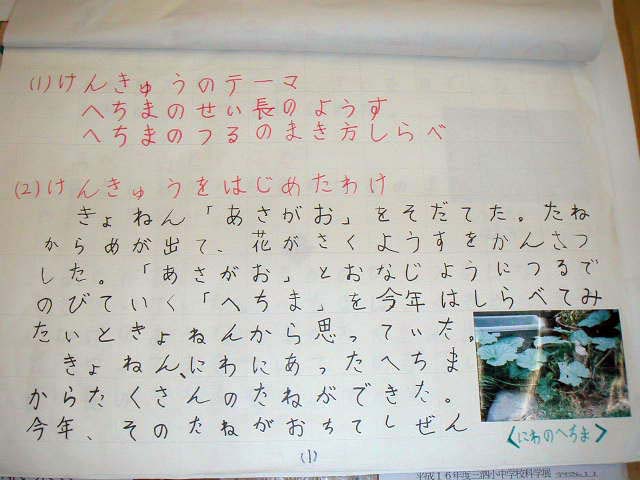 (1)けんきゅうのテーマ
へちまのせい長のようす
へちまのつるのまき方しらべ
(2)けんきゅうをはじめたわけ
きょねん「あさがお」をそだてた。たね
からめが出て、花がさくようすをかんさつ
した。「あさがお」とおなじようにつるで
のびていく「へちま」を今年はしらべてみ
たいときょねんから思っていた。
きょねん、にわにあったへちま
からたくさんのたねができた。
今年、そのたねがおちてしぜん
<にわのへちま>
(1)
平成16年度三泗小中学校科学展